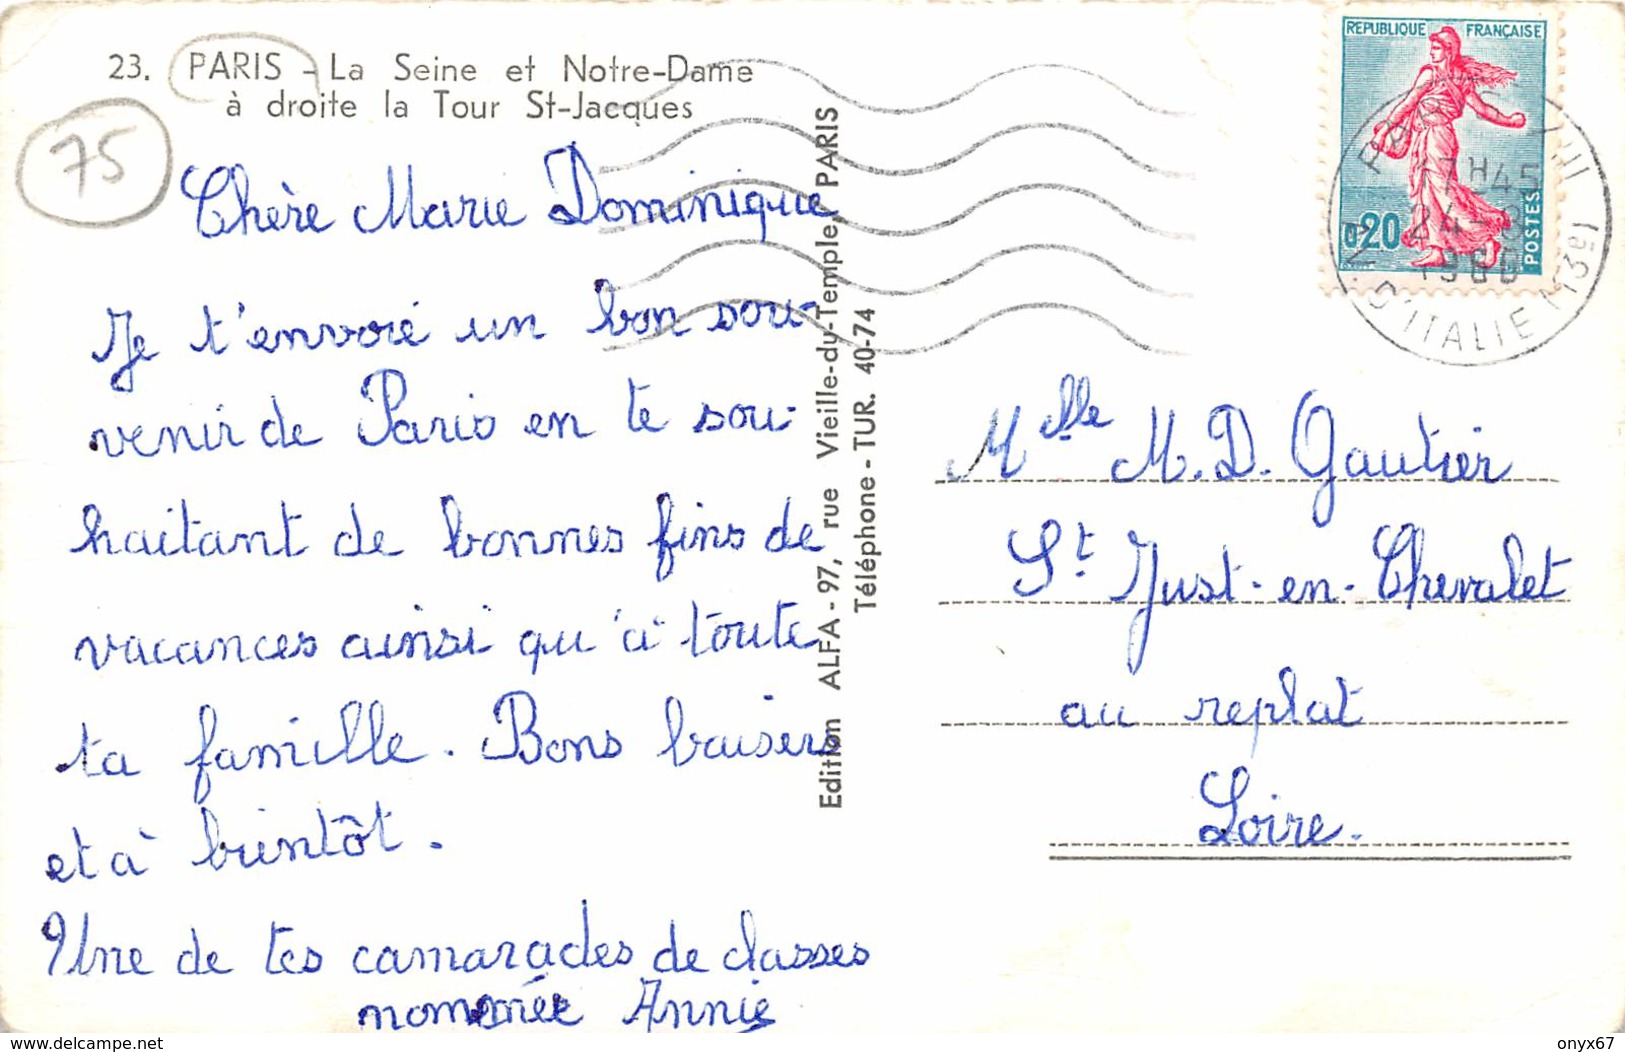 23. PARIS - La Seine et Notre-Dame
à droite la Tour St-Jacques
75
Chère Marie Dominique
Je t'envoie un bon sou-
venir de Paris en te sou-
haitant de bonnes fins de
vacances ainsi qu'à toute
ta famille. Bons baisers
et à bientôt.
Une de tes camarades de classes
nommée Annie
Edition ALFA - 97, rue Vieille-du-Temple, PARIS
Téléphone - TUR. 40-74
REPUBLIQUE FRANÇAISE
0,20
POSTES
PARIS XIII
17H45
24 - 9
1960
D'ITALIE (13e)
Mlle M. D. Gautier
St Just-en-Chevalet
au replat
Loire.
delcampe.net
onyx67